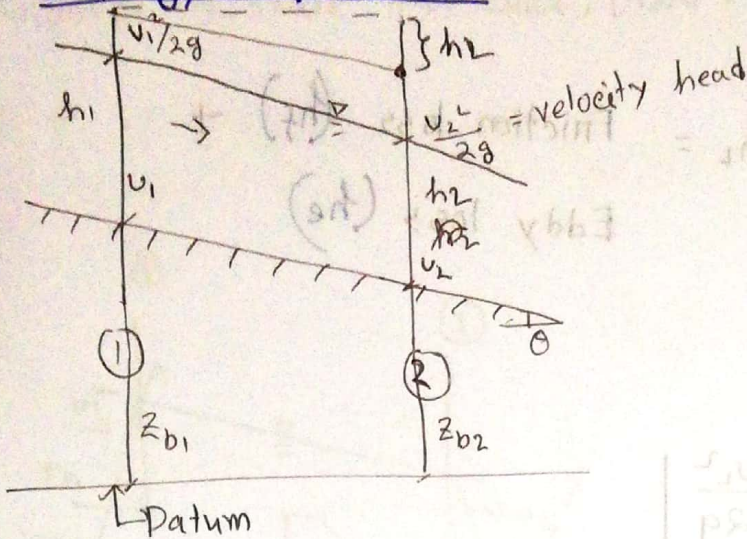 v₁²/2g
} h2
h1
v₂²/2g = velocity head
v1
h2
v2
θ
①
②
Zb1
Zb2
Datum